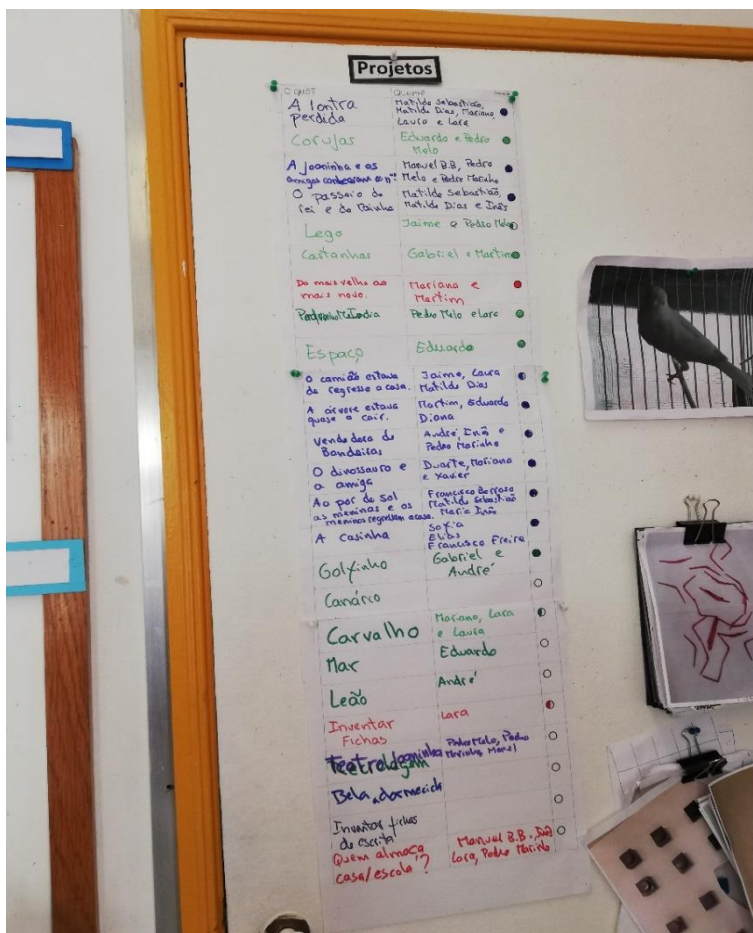 Projetos
O QUÊ? QUEM?
A lontra perdida
Matilde Sebastião, Matilde Dias, Mariana, Lauro e Lara
Corujas
Eduardo e Pedro Melo
A Joaninha e os amigos
Manuel B.B, Pedro Melo e Pedro Marinho
O passeio do rei e da Rainha
Matilde Sebastião, Matilde Dias e Inês
Lego
Jaime e Pedro Melo
Castanhas
Gabriel e Martim
Do mais velho ao mais novo.
Mariana e Martim
Pedro Melo e Lara
Espaço
Eduardo
O camião estava de regresso a casa.
Jaime, Laura Matilde Dias
A árvore estava quase a cair.
Martim, Eduardo Diana
Vendedora de Bandeiras
André, Inês e Pedro Marinho
O dinossauro e a amiga
Duarte, Mariana e Xavier
Ao por do Sol as meninas e os meninos regressam a casa.
Francisco Barroso Matilde Sebastião Maria Inês
A casinha
Sofia Elias Francisco Freire
Golfinho
Gabriel e André
Canário
Carvalho
Mariana, Lara e Laura
Mar
Eduardo
Leão
André
Inventar Fichas
Lara
Pedro Melo, Pedro Marinho, Manel
Bela adormecida
Inventar fichas de escrita
Quem almoça casa/escola?
Manuel B.B., Inês Lara, Pedro Marinho